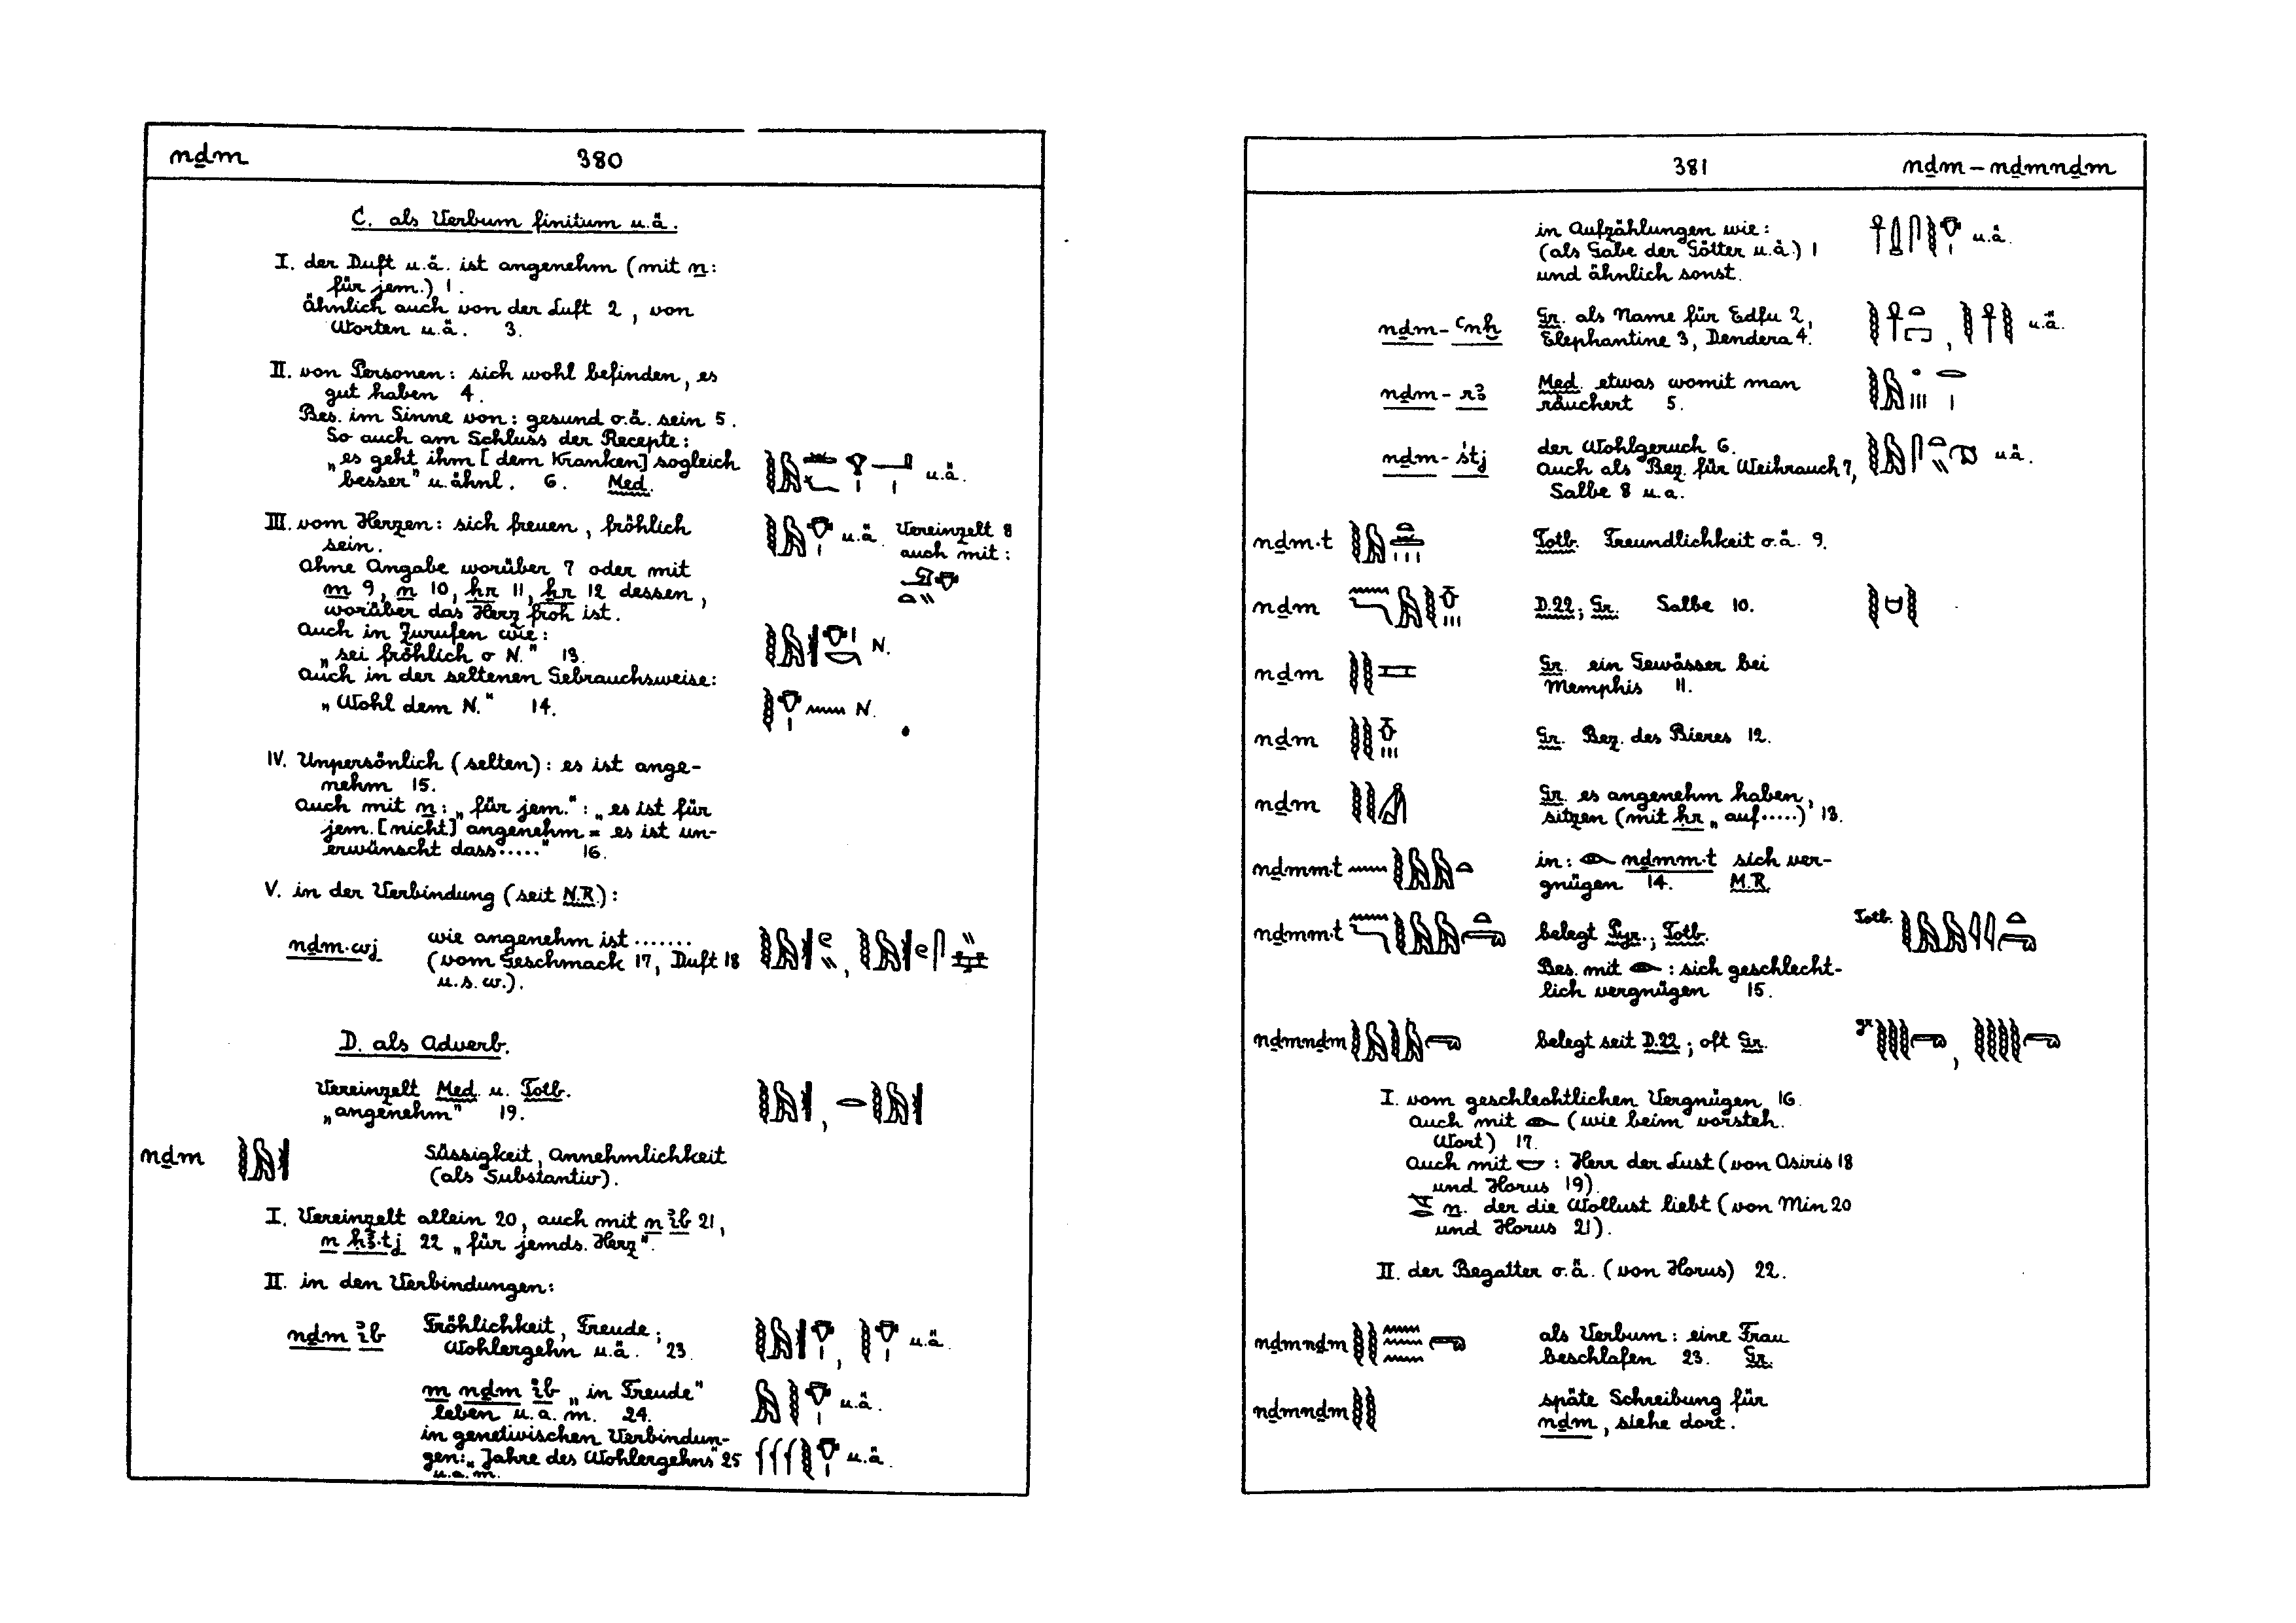 nḏm 380
C. als Verbum finitum u.ä.
I. der Duft u.ä. ist angenehm (mit n:
für jem.) 1.
Ähnlich auch von der Luft 2, von
Worten u.ä. 3.
II. von Personen: sich wohl befinden, es
gut haben 4.
Bes. im Sinne von: gesund o.ä. sein 5.
So auch am Schluss der Recepte:
„es geht ihm [dem Kranken] sogleich
besser" u. ähnl. 6. Med. u.ä.
III. vom Herzen: sich freuen, fröhlich u.ä. Vereinzelt 8
sein. auch mit:
Ohne Angabe worüber 7 oder mit
m 9, n 10, ḥr 11, ẖr 12 dessen,
worüber das Herz froh ist.
Auch in Zurufen wie:
„sei fröhlich o N." 13. N.
Auch in der seltenen Gebrauchsweise:
„Wohl dem N." 14. N.
IV. Unpersönlich (selten): es ist ange-
nehm 15.
Auch mit n: „für jem.": „es ist für
jem. [nicht] angenehm = es ist un-
erwünscht dass....." 16.
V. in der Verbindung (seit N.R.):
nḏm.wj wie angenehm ist .......
(vom Geschmack 17, Duft 18
u.s.w.).
D. als Adverb.
Vereinzelt Med. u. Totb.
„angenehm" 19.
nḏm Süssigkeit, Annehmlichkeit
(als Substantiv).
I. Vereinzelt allein 20, auch mit n ı͗b 21,
n ḥꜣ.tj 22 „für jemds. Herz".
II. in den Verbindungen:
nḏm ı͗b Fröhlichkeit, Freude;
Wohlergehn u.ä. 23. u.ä.
m nḏm ı͗b „in Freude"
leben u.a.m. 24. u.ä.
in genetivischen Verbindun-
gen: „Jahre des Wohlergehns" 25 u.ä.
u.a.m.
381 nḏm – nḏmnḏm
in Aufzählungen wie: u.ä.
(als Gabe der Götter u.ä.) 1
und ähnlich sonst.
nḏm-ꜥnḫ Gr. als Name für Edfu 2, u.ä.
Elephantine 3, Dendera 4.
nḏm-rꜣ Med. etwas womit man
räuchert 5.
nḏm-śtj der Wohlgeruch 6. u.ä.
Auch als Bez. für Weihrauch 7,
Salbe 8 u.a.
nḏm.t Totb. Freundlichkeit o.ä. 9.
nḏm D.22; Gr. Salbe 10.
nḏm Gr. ein Gewässer bei
Memphis 11.
nḏm Gr. Bez. des Bieres 12.
nḏm Gr. es angenehm haben,
sitzen (mit ḥr „auf.....") 13.
nḏmm.t in: nḏmm.t sich ver-
gnügen 14. M.R.
nḏmm.t belegt Pyr.; Totb. Totb.
Bes. mit : sich geschlecht-
lich vergnügen 15.
nḏmnḏm belegt seit D.22; oft Gr. gr.
I. vom geschlechtlichen Vergnügen 16.
Auch mit (wie beim vorsteh.
Wort) 17.
Auch mit : Herr der Lust (von Osiris 18
und Horus 19).
n. der die Wollust liebt (von Min 20
und Horus 21).
II. der Begatter o.ä. (von Horus) 22.
nḏmnḏm als Verbum: eine Frau
beschlafen 23. Gr.
nḏmnḏm späte Schreibung für
nḏm, siehe dort.